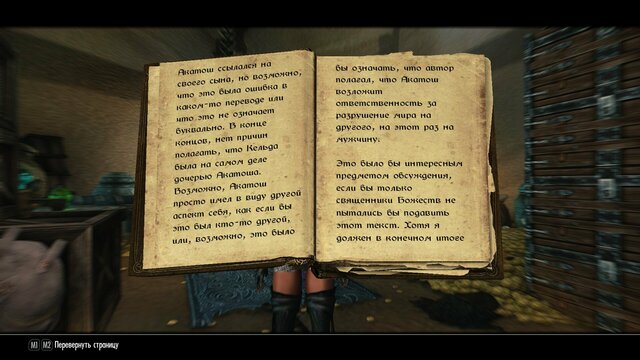 Акатош ссылался на
своего сына, но возможно,
что это была ошибка в
каком-то переводе или
что это не означает
буквально. В конце
концов, нет причин
полагать, что Кельда
была на самом деле
дочерью Акатоша.
Возможно, Акатош
просто имел в виду другой
аспект себя, как если бы
это был кто-то другой,
или, возможно, это было
бы означать, что автор
полагал, что Акатош
возложит
ответственность за
разрушение мира на
другого, на этот раз на
мужчину.
Это было бы интересным
предметом обсуждения,
если бы только
священники Божеств не
пытались бы подавить
этот текст. Хотя я
должен в конечном итоге
M1 M2 Перевернуть страницу